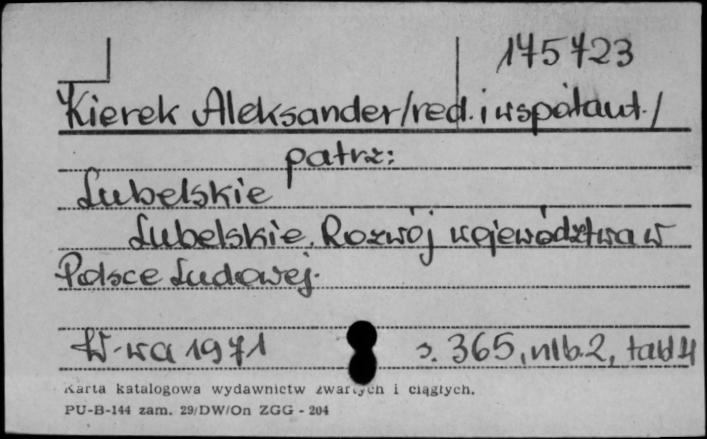 175723
Kierek Aleksander/red. i współaut./
patrz:
Lubelskie
Lubelskie. Rozwój województwa w
Polsce Ludowej.
W-wa 1971 s. 365, nlb. 2, tabl 4
Karta katalogowa wydawnictw zwartych i ciągłych.
PU-B-144 zam. 29/DW/On ZGG - 204